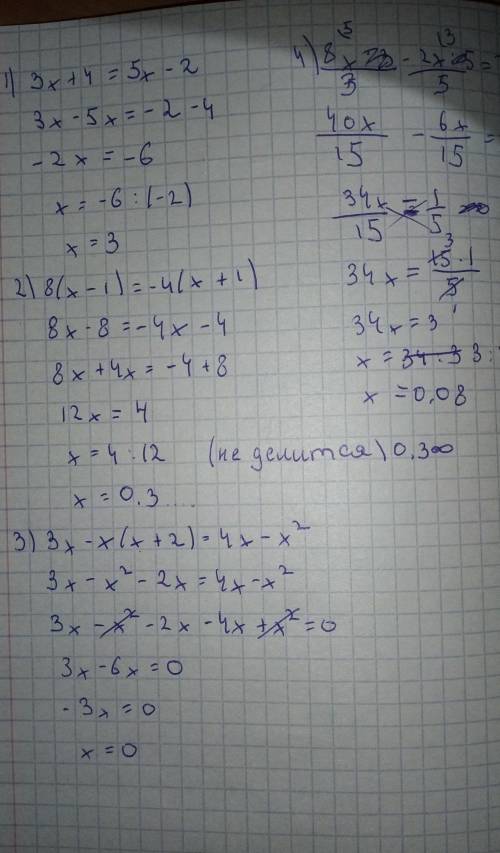 1) 3x + 4 = 5x - 2
3x - 5x = -2 - 4
-2x = -6
x = -6 : (-2)
x = 3
2) 8(x - 1) = -4(x + 1)
8x - 8 = -4x - 4
8x + 4x = -4 + 8
12x = 4
x = 4 : 12 (не делится) 0,3∞
x = 0,3....
3) 3x - x(x + 2) = 4x - x²
3x - x² - 2x = 4x - x²
3x - x² - 2x - 4x + x² = 0
3x - 6x = 0
-3x = 0
x = 0
4) 8x/3 - 2x/5 =
40x/15 - 6x/15 =
34x/15 = 1/5
34x = 15 · 1/5
34x = 3
x = 34 : 3 3 :
x = 0,08